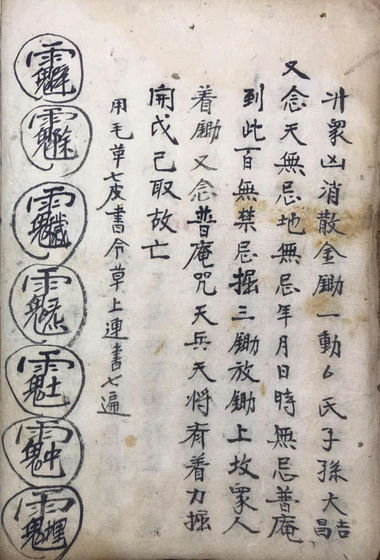 廾眾凶消散金鋤一動厶氏子孫大吉昌
又念天無忌地無忌年月日時無忌普庵
到此百無禁忌掘三鋤放鋤上坟眾人
着鋤又念普庵咒天兵天将斉着力掘
開戊己取故亡
用毛草七皮書令草上連書七遍